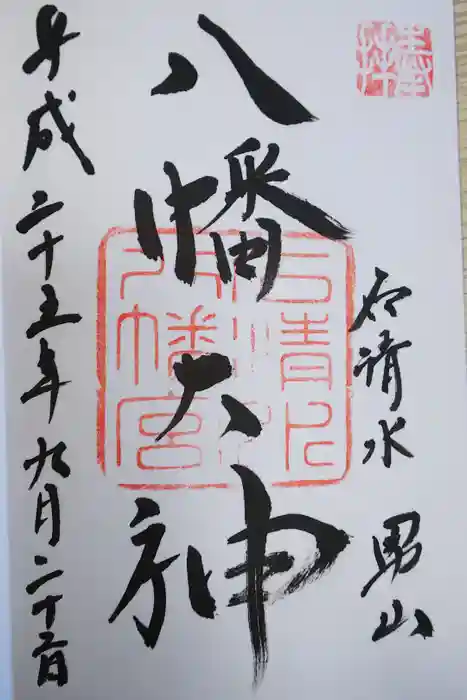 奉拝
石清水 男山
八幡大神
石清水
八幡宮
平成二十五年九月二十二日